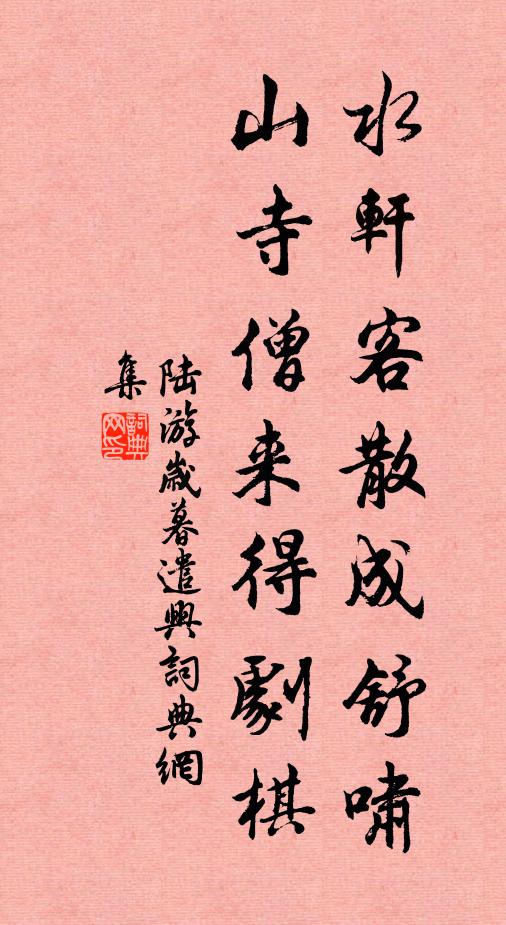 水軒客散成舒嘯
山寺僧来得劇棋
陆游歲暮遣興詞典網
集
詞典
网印